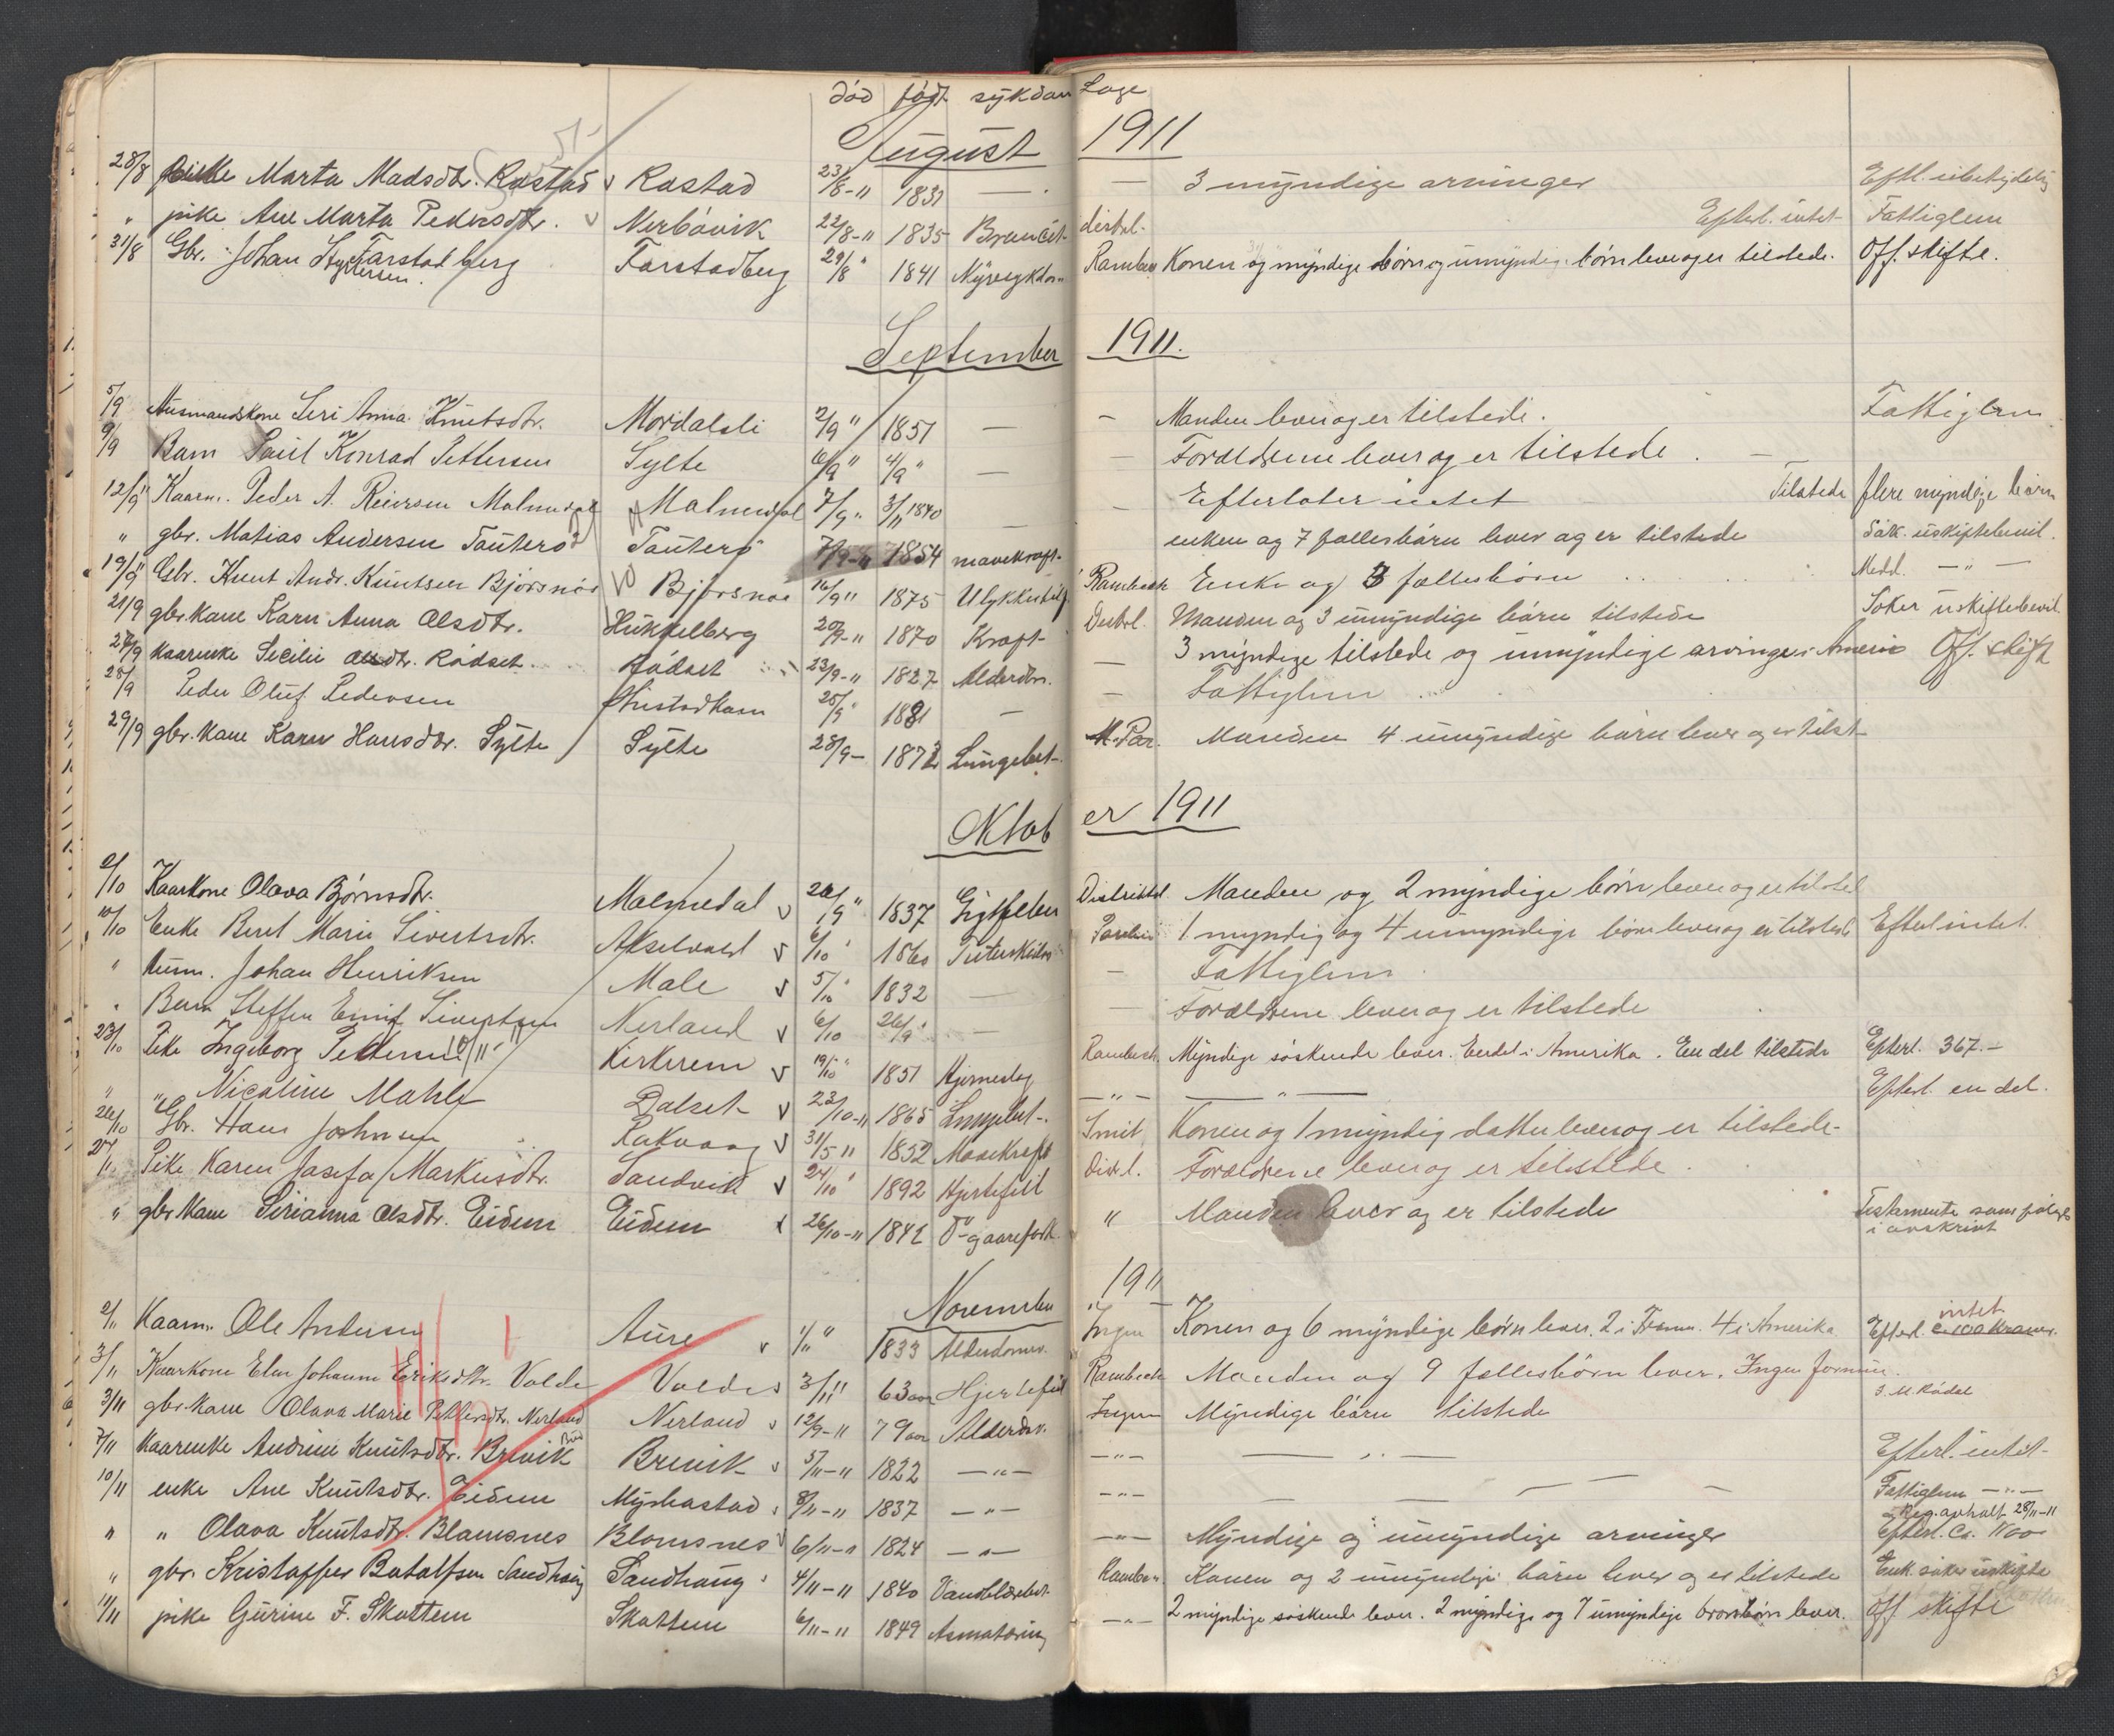 død født sykdom Læge
August 1911
28/8 pike Marta Madsdtr. Rastad v Rastad 23/8-11 1831 — — 3 myndige arvinger Eftl. ubetydelig
" pike Ane Marta Pedersdtr. v Nerbövik 22/8-11 1835 distrl. Efterl. intet Fattiglem
31/8 Gbr. Johan Farstadberg Farstadberg 29/8 " 1841 Konen og myndige børn og umyndige børn lever og er tilstede. Off. skifte.
September 1911.
5/9 Husmandskone Seri Anna Knutsdtr. Mordalsli 2/9 " 1851 — — Manden lever og er tilstede. Fattiglem
9/9 Barn Paul Konrad Pettersen Sylte 6/9 " 4/9 " — — Forældrene lever og er tilstede. —
12/9 Kaarm. Peder A. Reiersen Malmedal Malmedal 7/9 " 3/11 1840 — Efterlater intet Tilstede flere myndige børn
" gbr. Matias Andersen Tauterø Tauterø 7/9-11 1854 mavekræft enken og 7 fællesbörn lever og er tilstede Søk. uskiftebevil.
19/9 Gbr. Knut Andr. Knutsen Bjørsnøs Bjørsnøs 16/9 " 1875 Rambech Enke og 3 fællesbörn Medd. — " —
21/9 gbr. kone Karn Anna Olsdtr. Hukkelberg 20/9-11 1870 Kræft Distrl. Manden og 3 umyndige börn tilstede Søker uskiftebevil.
27/9 kaarenke Secilie Olsdtr. Rødset Rødset 23/9-11 1827 Alderdom. — 3 myndige tilstede og umyndige arvinger i Amerika Off. skift
28/9 Peder Oluf Pedersen 25/9 " 1881 — — Fattiglem
29/9 gbr. kone Karn Hansdtr. Sylte Sylte 28/9- 1872 Lungebet. Manden 4 umyndige börn lever og er tilst
Oktober 1911
2/10 Kaarkone Olava Bjørnsdtr. Malmedal v 20/9 " 1837 Gigtfeber Distriktsl Manden og 2 myndige børn lever og er tilsted
10/10 Enke Beret Marie Sivertsdtr. Akselvold v 6/10 ' 1860 1 myndig og 4 umyndige børn lever og er tilstede Efterl intet.
" Husm. Johan Henriksen Male v 5/10 ' 1832 — — Fattiglem.
" Barn Steffen Emil Sivertsen Nerland v 6/10 26/9 ' — — Forældrene lever og er tilstede
23/10 Pike Ingeborg Pettersen Kirkerem v 19/10 " 1851 Hjerneslag Rambech. Myndige søskende lever. Endel i Amerika. En del tilstede Efterl. 367.-
" " Nicoline Mahle Dalset v 23/10-11 1865 Lungebet. — " — — " — Efterl. en del.
26/10 Gbr. Hans Johnsen Rakvaag v 31/5 11 1852 Mavekræft Smit Konen og 1 myndig datter lever og er tilstede.
27/10 Pike Karen Josefa Markusdtr. Sandvik v 24/10 ' 1892 Hjertefeil Distrl. Forældrene lever og er tilstede.
" gbr kone Serianna Olsdtr. Eidem Eidem v 26/10-11 1842 " Manden lever og er tilstede Testamente som følger i avskrivt
November 1911
2/11 Kaarm. Ole Andersen Aure v 1/11 " 1833 Alderdomsv. Ingen Konen og 6 myndige børn lever. 2 i Fræna. 4 i Amerika. Efterl. intet c. 100 kroner.
3/11 Kaarkone Elen Johanne Eriksdtr. Volde Volde v 3/11 " 63 aar Hjertefeil Rambech Manden og 9 fællesbörn lever. Ingen formue.
3/11 gbr. kone Olava Marie Pettersdtr. Nerland Nerland v 12/9-11 79 aar Alderdsv. Ingen Myndige börn tilstede S. M. Rödal
7/11 Kaarenke Andrine Knutsdtr. Brevik Brevik v 5/11-11 1822 — " — — " — — " — Efterl. intet
10/11 enke Ane Knutsdtr. Eidem Myrbostad v 8/11-11 1837 — " — — " — — — — — Fattiglem — " —
" " Olava Knutsdtr. Blomsnes Blomsnes v 6/11-11 1824 — " — — " — Myndige og umyndige arvinger Reg. avholt 28/11-11 Efterl. ca.
" gbr. Kristoffer Botolfsen Sandhaug Sandhaug v 4/11-11 1840 Konen og 2 umyndige børn lever og er tilstede Enk. søker uskifte
11/11 pike Gurine F. Skottem Skottem 6/11-11 1849 — " — 2 myndige søskende lever. 2 myndige og 7 umyndige brorsbørn lever. Off skifte